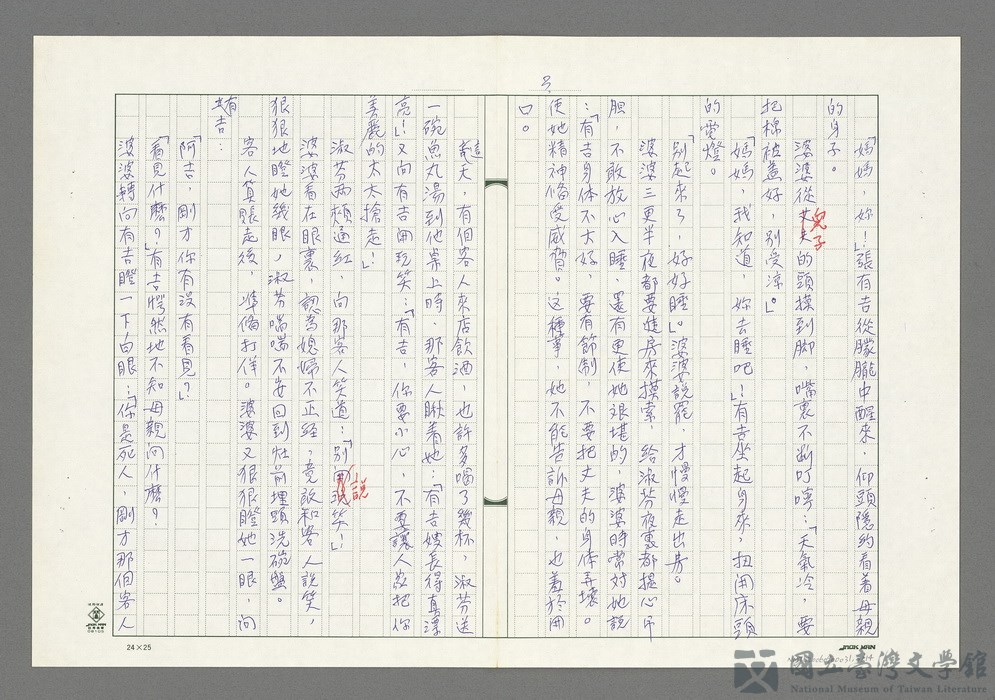 「媽媽,妳!」張有吉從朦朧中醒來,仰頭隱約看着母親
的身子。
婆婆從兒子的頭摸到脚,嘴裏不斷叮嚀:「天氣冷,要
把棉被蓋好,別受涼」。
「媽媽,我知道,妳去睡吧!」有吉坐起身來,扭開床頭
的電燈。
「別起來了,好好睡」。婆婆說罷,才慢慢走出房。
婆婆三更半夜都要進房來摸索,給淑芬夜裏都提心吊
胆,不敢放心入睡,還有更使她狼堪的,婆婆時常対她說
:「有吉身体不大好,要有節制,不要把丈夫的身体弄壞。
使她精神俻受威脅。这種事,她不能告訴母親,也羞於開
口。
這天,有個客人來店飲酒,也許多喝了幾杯,淑芬送
一碗魚丸湯到他桌上時,那客人瞅着她:「有吉嫂長得真漂
亮!」又向有吉開玩笑:「有吉,你要小心,不要讓人家把你
美麗的太太搶走!」
淑芬两頰通紅,向那客人笑道:「別說笑!」
婆婆看在眼裏,認為媳婦不正經,竟敢和客人說笑,
狠狠地瞪她幾眼,淑芬喘喘不安回到灶前埋頭洗碗盤。
客人買賬走後,準俻打佯。婆婆又狠狠瞪她一眼,向
有吉:
「阿吉,剛才你有没有看見?」
「看見什麽?」有吉愕然地不知母親问什麽?
婆婆轉向有吉瞪一下白眼:「你是死人,剛才那個客人
24×25
國立臺灣文學館
National Museum of Taiwan Literature